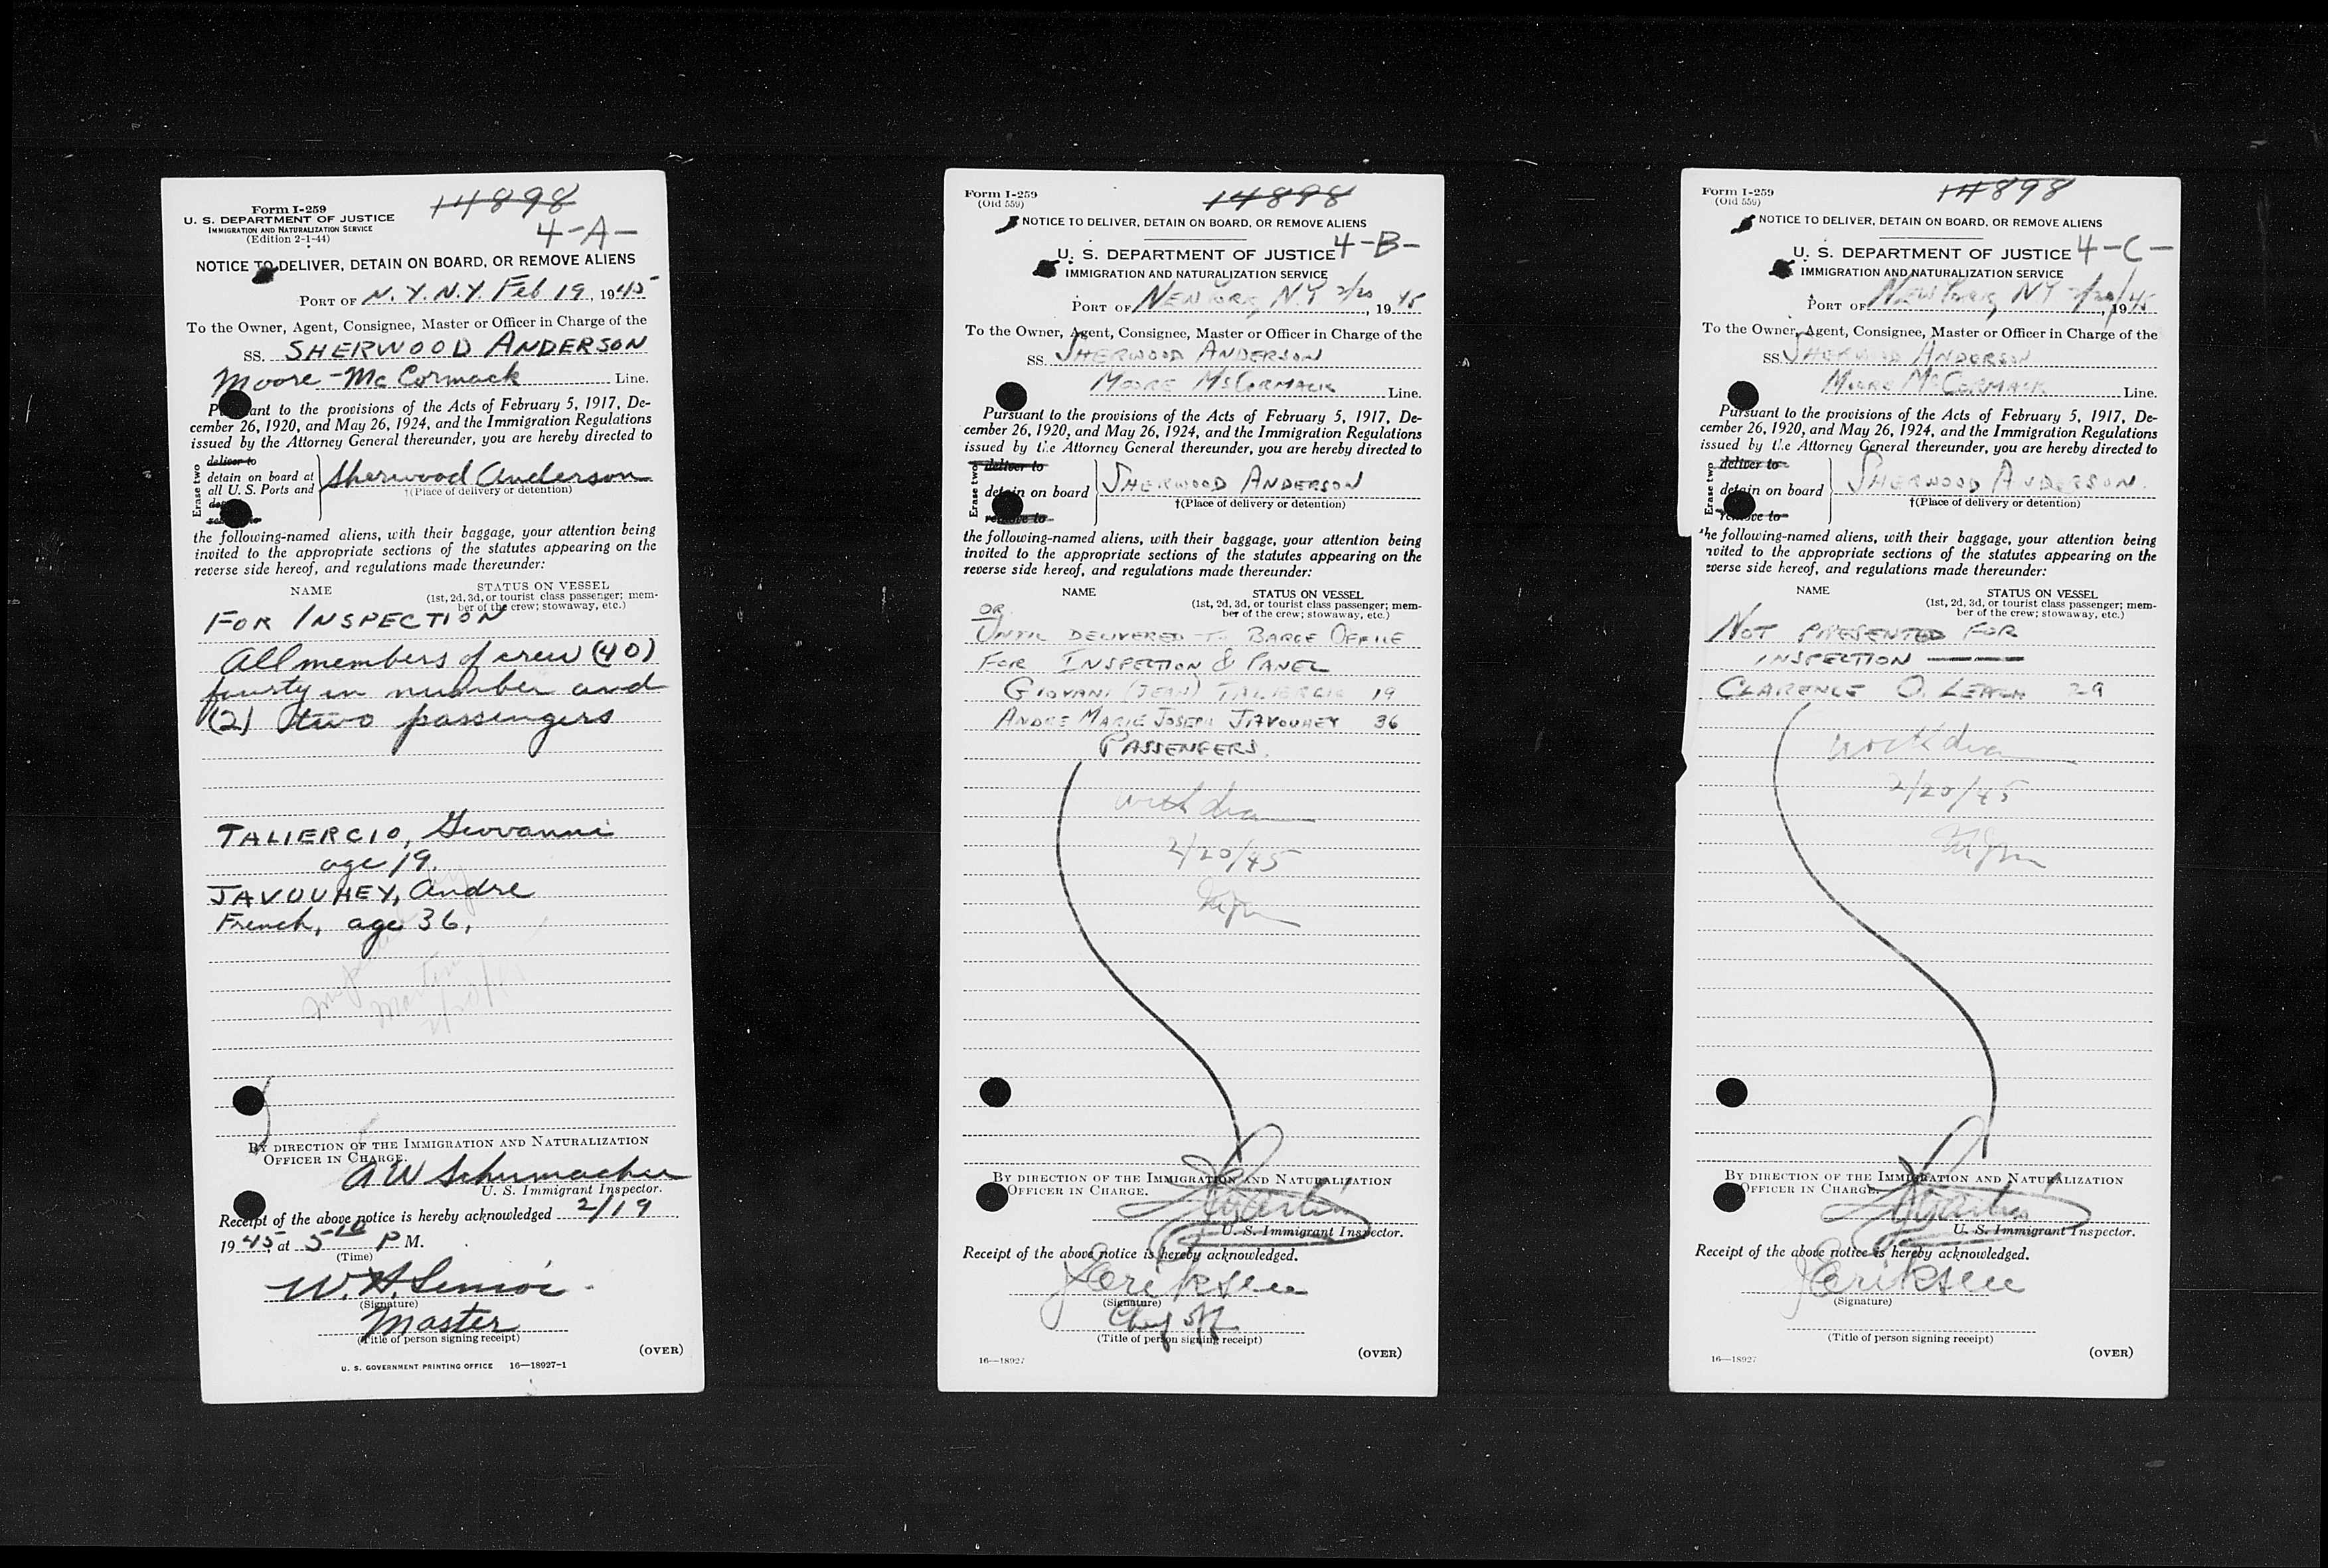 Form I-259
U. S. DEPARTMENT OF JUSTICE
IMMIGRATION AND NATURALIZATION SERVICE
(Edition 2-1-44)
14898
4-A-
NOTICE TO DELIVER, DETAIN ON BOARD, OR REMOVE ALIENS
PORT OF N.Y.N.Y. Feb 19, 1945
To the Owner, Agent, Consignee, Master or Officer in Charge of the
SS. SHERWOOD ANDERSON
Moore-McCormack Line.
Pursuant to the provisions of the Acts of February 5, 1917, De-
cember 26, 1920, and May 26, 1924, and the Immigration Regulations
issued by the Attorney General thereunder, you are hereby directed to
Erase two
deliver to
detain on board at
all U. S. Ports and
Sherwood Anderson
†(Place of delivery or detention)
the following-named aliens, with their baggage, your attention being
invited to the appropriate sections of the statutes appearing on the
reverse side hereof, and regulations made thereunder:
NAME STATUS ON VESSEL
(1st, 2d, 3d, or tourist class passenger; mem-
ber of the crew; stowaway, etc.)
FOR INSPECTION
All members of crew (40)
fourty in number and
(2) two passengers
TALIERCIO, Giovanni
age 19.
JAVOUHEY, Andre
French, age 36,
Martin
BY DIRECTION OF THE IMMIGRATION AND NATURALIZATION
OFFICER IN CHARGE.
A W Schumacher
U. S. Immigrant Inspector.
Receipt of the above notice is hereby acknowledged 2/19
1945 at 5 10 P M.
(Time)
W. H. Senior
(Signature)
Master
(Title of person signing receipt)
(OVER)
U. S. GOVERNMENT PRINTING OFFICE 16—18927-1
Form I-259
(Old 559)
14898
NOTICE TO DELIVER, DETAIN ON BOARD, OR REMOVE ALIENS
U. S. DEPARTMENT OF JUSTICE 4-B-
IMMIGRATION AND NATURALIZATION SERVICE
PORT OF NEW YORK, N.Y. 2/20, 1945
To the Owner, Agent, Consignee, Master or Officer in Charge of the
SS. SHERWOOD ANDERSON
MOORE McCORMACK Line.
Pursuant to the provisions of the Acts of February 5, 1917, De-
cember 26, 1920, and May 26, 1924, and the Immigration Regulations
issued by the Attorney General thereunder, you are hereby directed to
Erase two
deliver to
detain on board
remove to
SHERWOOD ANDERSON
†(Place of delivery or detention)
the following-named aliens, with their baggage, your attention being
invited to the appropriate sections of the statutes appearing on the
reverse side hereof, and regulations made thereunder:
NAME STATUS ON VESSEL
(1st, 2d, 3d, or tourist class passenger; mem-
ber of the crew; stowaway, etc.)
OR
UNTIL DELIVERED TO BARGE OFFICE
FOR INSPECTION & PANEL
GIOVANI (JEAN) TALIERCIO 19
ANDRE MARIE JOSEPH JAVOUHEY 36
PASSENGERS.
2/20/45
BY DIRECTION OF THE IMMIGRATION AND NATURALIZATION
OFFICER IN CHARGE.
Martin
U. S. Immigrant Inspector.
Receipt of the above notice is hereby acknowledged.
J Eriksen
(Signature)
Chief Off
(Title of person signing receipt)
16—18927
(OVER)
Form I-259
(Old 559)
14898
NOTICE TO DELIVER, DETAIN ON BOARD, OR REMOVE ALIENS
U. S. DEPARTMENT OF JUSTICE 4-C-
IMMIGRATION AND NATURALIZATION SERVICE
PORT OF NEW YORK, NY 2/20/, 1945
To the Owner, Agent, Consignee, Master or Officer in Charge of the
SS. SHERWOOD ANDERSON
MOORE McCORMACK Line.
Pursuant to the provisions of the Acts of February 5, 1917, De-
cember 26, 1920, and May 26, 1924, and the Immigration Regulations
issued by the Attorney General thereunder, you are hereby directed to
Erase two
deliver to
detain on board
remove to
SHERWOOD ANDERSON.
†(Place of delivery or detention)
the following-named aliens, with their baggage, your attention being
nvited to the appropriate sections of the statutes appearing on the
everse side hereof, and regulations made thereunder:
NAME STATUS ON VESSEL
(1st, 2d, 3d, or tourist class passenger; mem-
ber of the crew; stowaway, etc.)
NOT PRESENTED FOR
INSPECTION ———
CLARENCE O. LEACH 29
2/20/45
BY DIRECTION OF THE IMMIGRATION AND NATURALIZATION
OFFICER IN CHARGE.
Martin
U. S. Immigrant Inspector.
Receipt of the above notice is hereby acknowledged.
J Eriksen
(Signature)
(Title of person signing receipt)
16—18927
(OVER)